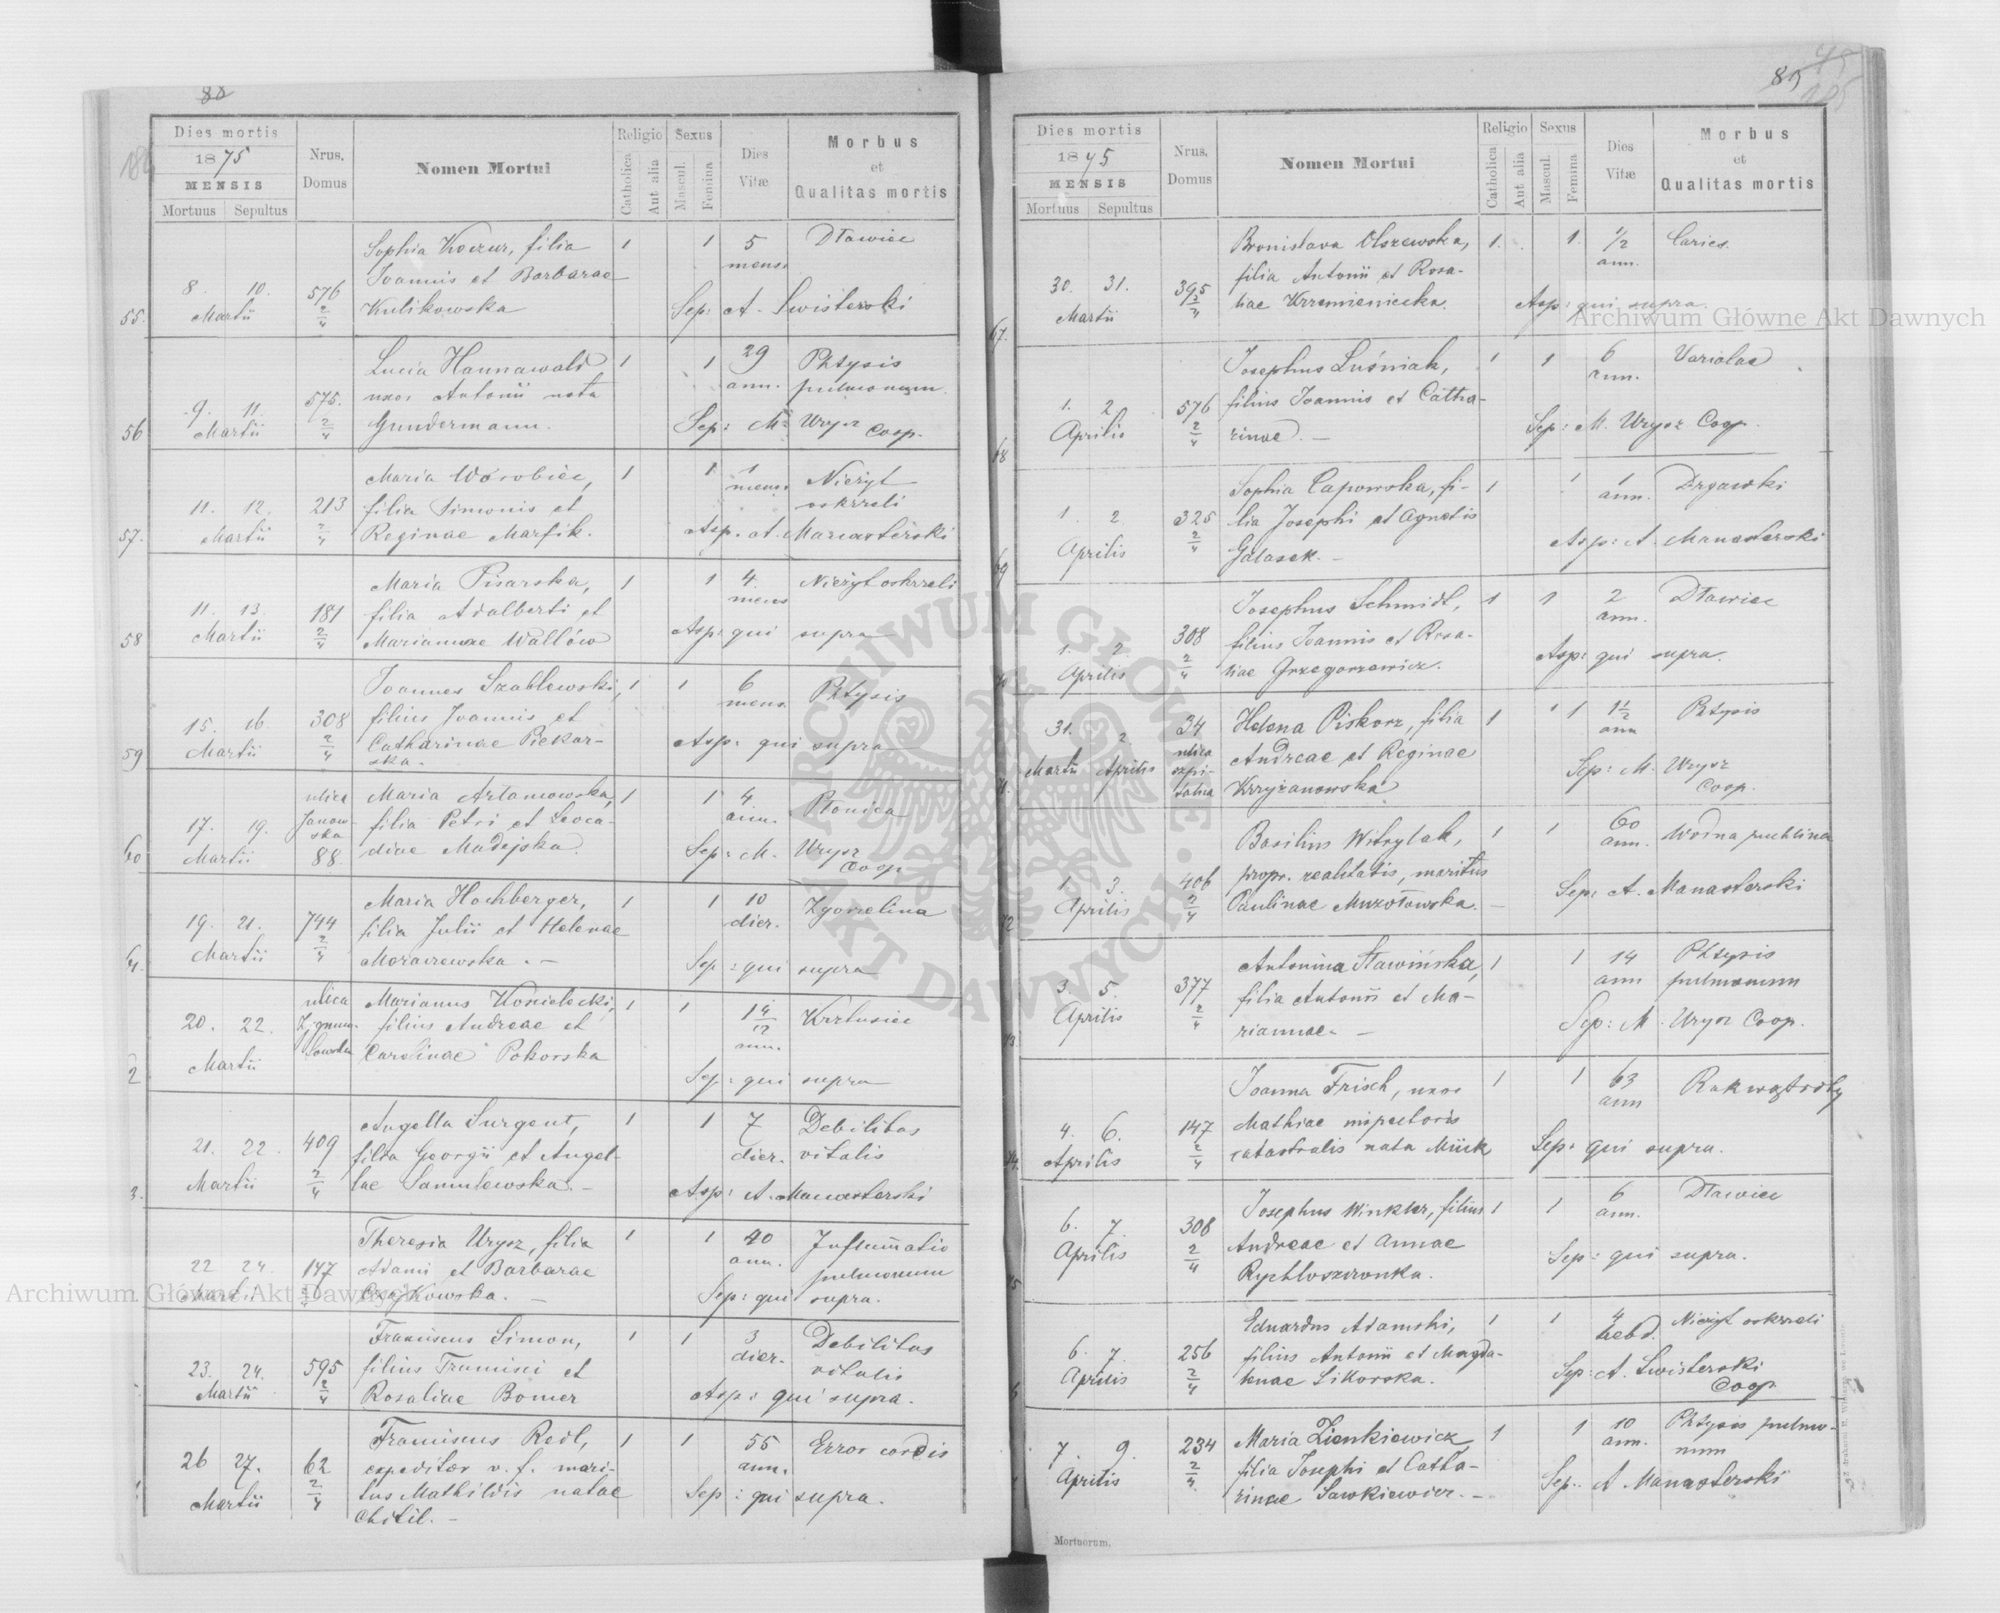 88
Dies mortis
1875
MENSIS
Mortuus Sepultus
Nrus. Domus
Nomen Mortui
Religio
Catholica
Aut alia
Sexus
Mascul.
Femina
Dies Vitæ
Morbus
et
Qualitas mortis
55.
8. 10.
Martii
576 2/4
Sophia Koczur, filia
Joannis et Barbarae
Kulikowska
1 1 5 mens. Dławiec
Sep: A. Swisterski
56
9. 11.
Martii
575. 2/4
Lucia Hannawald
uxor Antonii nata
Gundermann.
1 1 29 ann. Phtysis
pulmonum.
Sep: M. Urysz Coop.
57.
11. 12.
Martii
213 2/4
Maria Worobiec,
filia Simonis et
Reginae Marfik.
1 1 1 mens. Nieżyt
oskrzeli
Asp. A. Manasterski
58
11. 13.
Martii
181 2/4
Maria Pisarska,
filia Adalberti et
Mariannae Wallów
1 1 4. mens Nieżyt oskrzeli
Asp: qui supra
59
15. 16.
Martii
308 2/4
Joannes Szablewski,
filius Joannis et
Catharinae Piekar-
ska.
1 1 6 mens. Phtysis
Asp: qui supra
60
17. 19.
Martii
ulica
Janow-
ska
88.
Maria Artamowska,
filia Petri et Leoca-
diae Madejska.
1 1 4. ann. Płonica
Sep: M. Urysz
Coop
61.
19. 21.
Martii
744 2/4
Maria Hochberger,
filia Julii et Helenae
Moraczewska. —
1 1 10 dier. Zgorzelina
Sep: qui supra
2
20. 22.
Martii
ulica
Zygmun-
towska
Marianus Kosielecki,
filius Andreae et
Carolinae Pokorska
1 1 1 4/12 ann. Krztusiec
Sep: qui supra
3.
21. 22.
Martii
409 2/4
Angella Surgent,
filia Georgii et Angel-
lae Samulewska. —
1 1 7 dier. Debilitas
vitalis
Asp: A. Manasterski
22 24.
Martii
147 2/4
Theresia Urysz, filia
Adami et Barbarae
Czajkowska. —
1 1 40 ann. Inflammatio
pulmonum
Sep: qui supra.
23. 24.
Martii
595 2/4
Franciscus Simon,
filius Francisci et
Rosaliae Bomer
1 1 3 dier. Debilitas
vitalis
Asp: qui supra.
26 27.
Martii
62 2/4
Franciscus Redl,
expeditor v. f. mari-
tus Mathildis natae
Chitil. —
1 1 55 ann. Error cordis
Sep: qui supra.
89
Dies mortis
1875
MENSIS
Mortuus Sepultus
Nrus. Domus
Nomen Mortui
Religio
Catholica
Aut alia
Sexus
Mascul.
Femina
Dies Vitæ
Morbus
et
Qualitas mortis
67.
30. 31.
Martii
395 2/4
Bronislava Olszewska,
filia Antonii et Rosa-
liae Krzemieniecka.
1. 1. 1/2 ann. Caries.
Asp: qui supra.
68
1. 2.
Aprilis
576 2/4
Josephus Luśniak,
filius Joannis et Catha-
rinae. —
1 1 6 ann. Variolae
Sep: M. Urysz Coop.
69
1. 2.
Aprilis
325 2/4
Sophia Capowska, fi-
lia Josephi et Agnetis
Galasek. —
1 1 1 ann. Drgawki
Asp: A. Manasterski
1. 2.
Aprilis
308 2/4
Josephus Schmidt,
filius Joannis et Rosa-
liae Grzegorzewicz.
1 1 2 ann. Dławiec
Asp: qui supra.
31. 2.
Martii Aprilis
34
ulica
szpi-
talna
Helena Piskorz, filia
Andreae et Reginae
Krzyżanowska.
1 1 1 1/2 ann Phtysis
Sep: M. Urysz
Coop.
72
1. 3.
Aprilis
406 2/4
Basilius Witrylak,
propr. realitatis, maritus
Paulinae Muzołowska. —
1 1 60 ann. Wodna puchlina
Sep: A. Manasterski
3. 5.
Aprilis
377 2/4
Antonina Sławińska,
filia Antonii et Ma-
riannae. —
1 1 14 ann Phtysis
pulmonum
Sep: M. Urysz Coop.
74.
4. 6.
Aprilis
147 2/4
Joanna Frisch, uxor
Mathiae inspectoris
catastralis nata Mück
1 1 63 ann Rak wątroby
Sep: qui supra.
6. 7.
Aprilis
308 2/4
Josephus Winkler, filius
Andreae et Annae
Rychloszronka.
1 1 6 ann. Dławiec
Sep: qui supra.
6. 7.
Aprilis
256 2/4
Eduardus Adamski,
filius Antonii et Magda-
lenae Sikorska.
1 1 4 hebd. Nieżyt oskrzeli
Sep: A. Swisterski
Coop
7. 9.
Aprilis
234 2/4
Maria Zienkiewicz
filia Josephi et Catha-
rinae Sawkiewicz. —
1 1 10 ann. Phtysis pulmo-
num
Sep. A Manasterski
Mortuorum.
Archiwum Główne Akt Dawnych
Archiwum Główne Akt Dawnych
ARCHIWUM GŁÓWNE AKT DAWNYCH